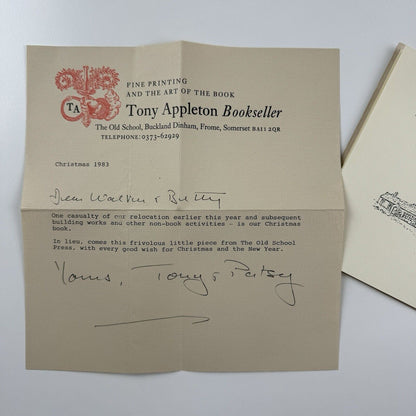 FINE PRINTING
AND THE ART OF THE BOOK
TA
Tony Appleton Bookseller
The Old School, Buckland Dinham, Frome, Somerset BA11 2QR
TELEPHONE: 0373-62929
Christmas 1983
Dear Walter & Betty
One casualty of our relocation earlier this year and subsequent
building works and other non-book activities - is our Christmas
book.
In lieu, comes this frivolous little piece from The Old School
Press, with every good wish for Christmas and the New Year.
Yours, Tony & Patsy